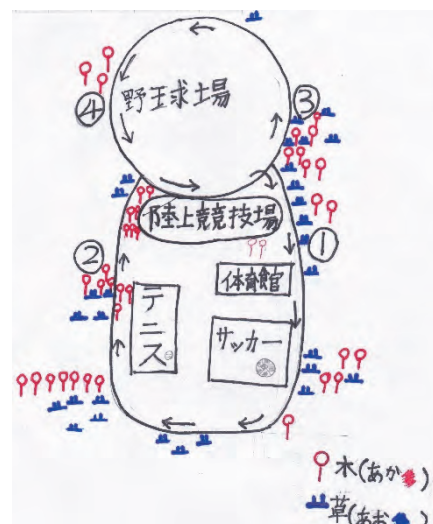 ④
野球場
③
陸上競技場
①
②
体育館
テニス
サッカー
木(あか)
草(あお)